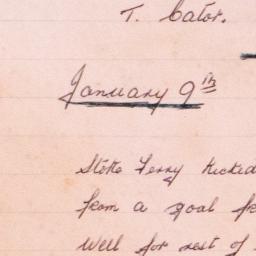 T. Cator.
January 9th
Stoke Ferry kicked
from a goal
Well for rest of